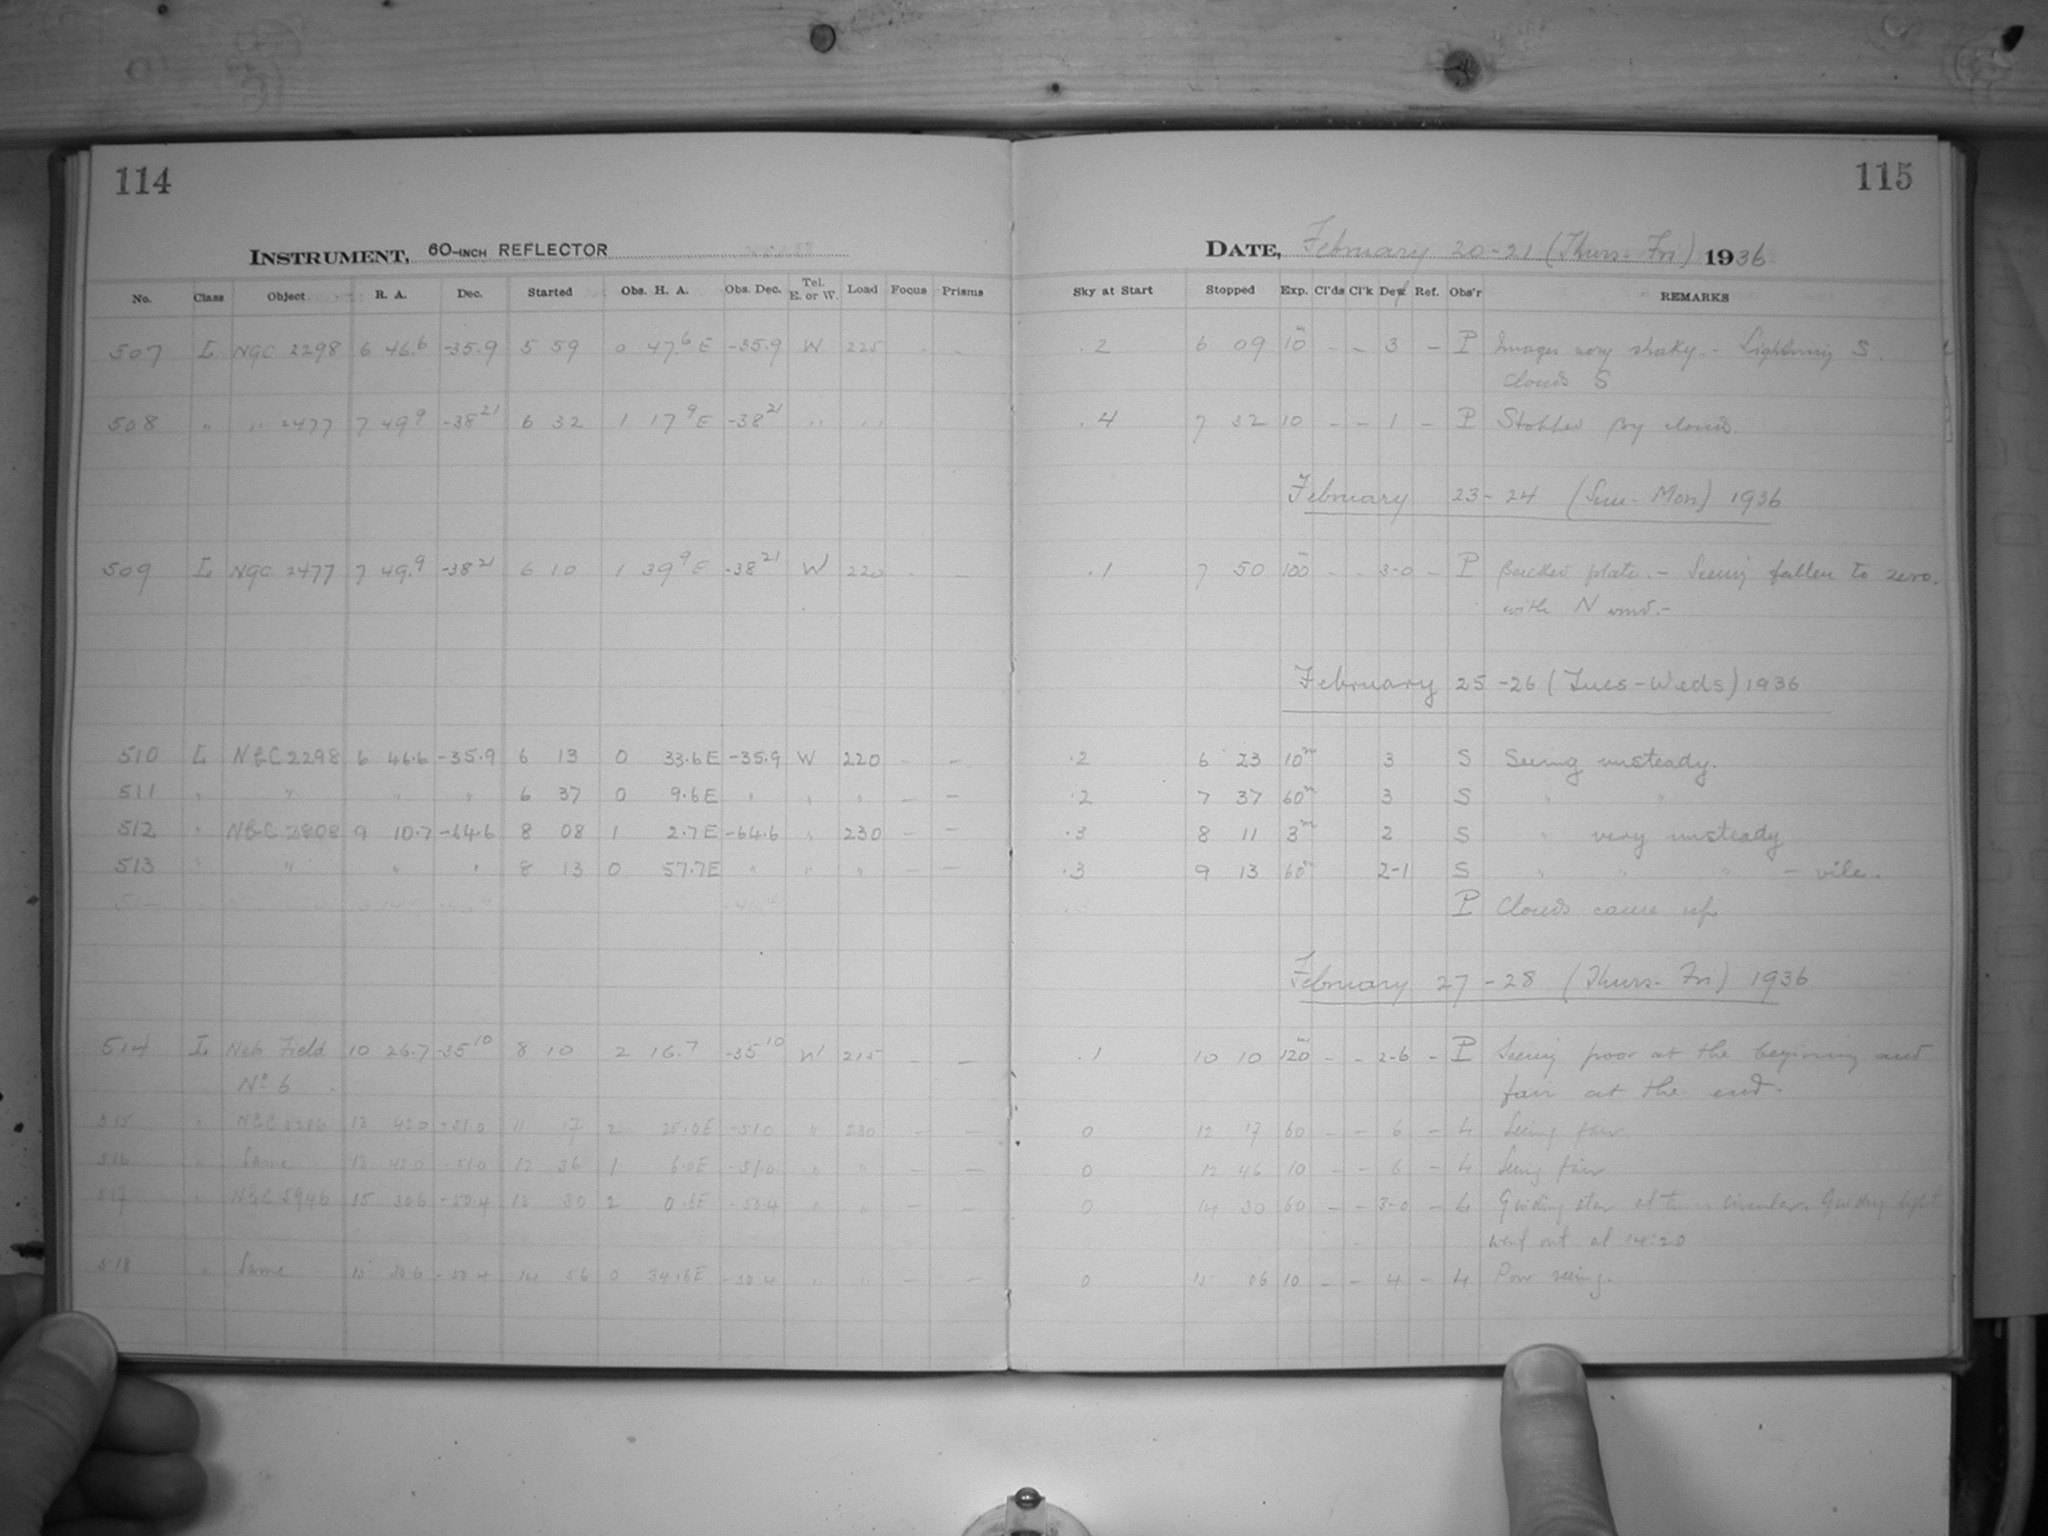 114
115
INSTRUMENT, 60-INCH REFLECTOR
DATE, February 20-21 (Thurs-Fri) 1936
No. Class Object R. A. Dec. Started Obs. H. A. Obs. Dec. Tel. E. or W. Load Focus Prisms Sky at Start Stopped Exp. Cl'ds Cl'k Dew Ref. Obs'r REMARKS
507 L NGC 2298 6 46.6 -35.9 5 59 0 47.6 E -35.9 W 225 - - .2 6 09 10m - - 3 - P Images very shaky. - Lightning S.
Clouds S
508 " " 2477 7 49.9 -38 21 6 32 1 17.9 E -38 21 " " .4 7 32 10 - - 1 - P Stopped by clouds.
February 23-24 (Sun-Mon) 1936
509 L NGC 2477 7 49.9 -38 21 6 10 1 39.9 E -38 21 W 220 - - .1 7 50 100m - - 3-0 - P Backed plate. - Seeing fallen to zero.
with N wind.-
February 25-26 (Tues-Weds) 1936
510 L NGC 2298 6 46.6 -35.9 6 13 0 33.6 E -35.9 W 220 - - .2 6 23 10m 3 S Seeing unsteady.
511 " " " " 6 37 0 9.6 E " " " - - .2 7 37 60m 3 S " "
512 " NGC 2808 9 10.7 -64.6 8 08 1 2.7 E -64.6 " 230 - - .3 8 11 3m 2 S " very unsteady
513 " " " " 8 13 0 57.7 E " " " - - .3 9 13 60m 2-1 S " " " - vile.
P Clouds came up
February 27-28 (Thurs-Fri) 1936
514 L Neb Field 10 26.7 -35 10 8 10 2 16.7 -35 10 W 215 - - .1 10 10 120m - - 2-6 - P Seeing poor at the begining and
No 6 fair at the end-
515 " NGC 5286 13 42.0 -51.0 11 17 2 25.0 E -51.0 " 230 - - 0 12 17 60 - - 6 - L Seeing fair
516 " Same 13 42.0 -51.0 12 36 1 6.0 E -51.0 " " - - 0 12 46 10 - - 6 - L Seeing fair
517 " NGC 5946 15 30.6 -50.4 13 30 2 0.6 E -50.4 " " - - 0 14 30 60 - - 3-0 - L Guiding star circular. Guiding light
went out at 14:20
518 " Same 15 30.6 -50.4 14 56 0 34.6 E -50.4 " " - - 0 15 06 10 - - 4 - L Poor seeing.